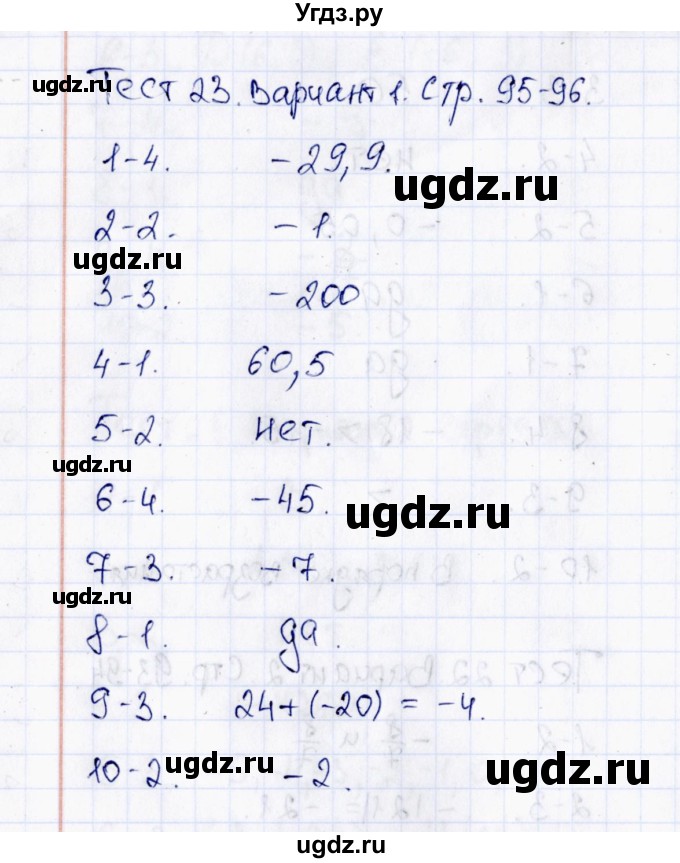 Угдз.ру
ugdz.ru
Тест 23. Вариант 1. Стр. 95-96.
1-4. -29,9.
ugdz.ru
2-2. -1.
ugdz.ru
3-3. -200
4-1. 60,5
5-2. нет.
ugdz.ru
6-4. -45.
ugdz.ru
7-3. -7.
ugdz.ru
8-1. да.
9-3. 24+(-20) = -4.
10-2. -2.
ugdz.ru
ugdz.ru
ugdz.ru